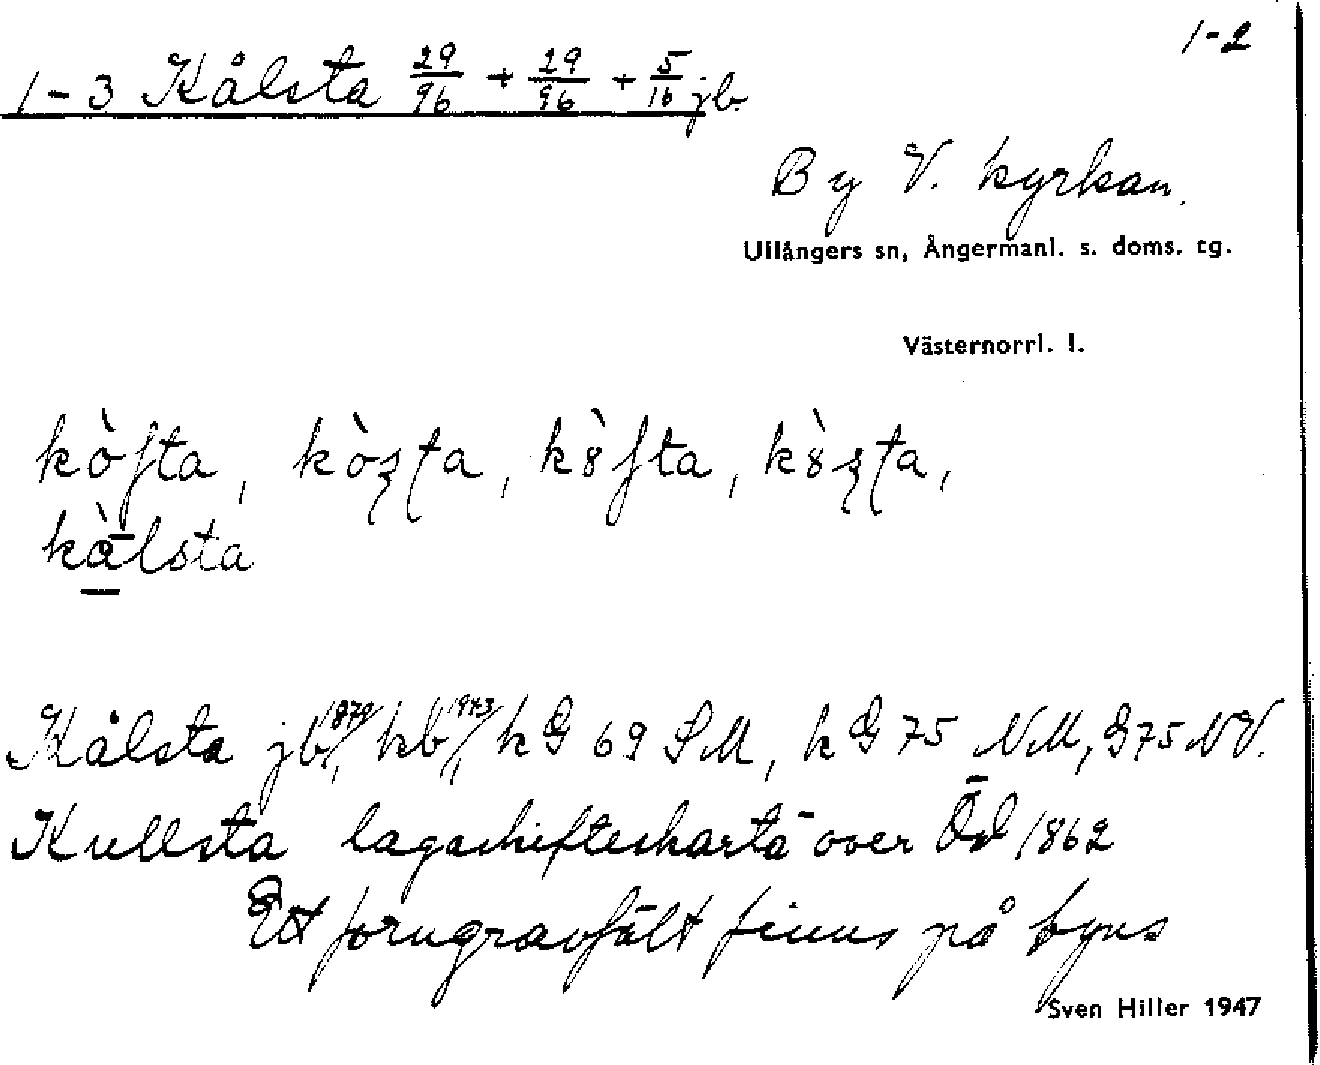 1-2
1-3 Kålsta 29/96 + 29/96 + 5/16 jb.
By V. kyrkan.
Ullångers sn, Ångermanl. s. doms. tg.
Västernorrl. l.
kålsta
Kålsta jb 1879/, kb 1943/, k G 69 SM, k G 75 NM, G 75 NV.
Kullsta lagaskifteskarta över Öd 1862
Ett forngravfält finns på byns
Sven Hiller 1947